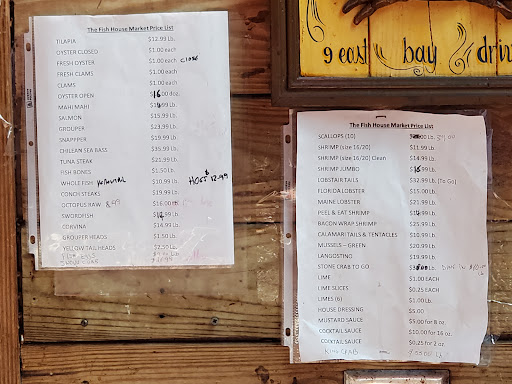 The Fish House Market Price List
TILAPIA $12.99 Lb.
OYSTER CLOSED $1.00 each
FRESH OYSTER $1.00 each close
FRESH CLAMS $1.00 each
CLAMS $1.00 each
OYSTER OPEN $16.00 doz.
MAHI MAHI
SALMON $15.99 Lb.
GROUPER $23.99 Lb.
SNAPPPER $19.99 Lb.
CHILEAN SEA BASS $35.99 Lb.
TUNA STEAK $21.99 Lb.
FISH BONES $1.50 Lb.
WHOLE FISH $10.99 Lb. HOG $12.99
CONCH STEAKS $19.99 Lb.
OCTOPUS RAW $16.00
SWORDFISH
CORVINA $14.99 Lb.
GROUPER HEADS $1.50 Lb.
YELLOW TAIL HEADS $2.50 Lb.
9 east bay driv
The Fish House Market Price List
SCALLOPS (10)
SHRIMP (size 16/20) $11.99 Lb.
SHRIMP (size 16/20) Clean $14.99 Lb.
SHRIMP JUMBO $16.99 Lb.
LOBSTAIR TAILS $32.99 Lb. (To Go)
FLORIDA LOBSTER $15.00 Lb.
MAINE LOBSTER $21.99 Lb.
PEEL & EAT SHRIMP
BACON WRAP SHRIMP $25.99 Lb.
CALAMARI TAILS & TENTACLES $10.99 Lb.
MUSSELS – GREEN $20.99 Lb.
LANGOSTINO $19.99 Lb.
STONE CRAB TO GO
LIME $1.00 EACH
LIME SLICES $0.25 EACH
LIMES (6) $1.00 Lb.
HOUSE DRESSING $5.00
MUSTARD SAUCE $5.00 for 8 oz.
COCKTAIL SAUCE $10.00 for 16 oz.
COCKTAIL SAUCE $0.25 for 2 oz.
KING CRAB